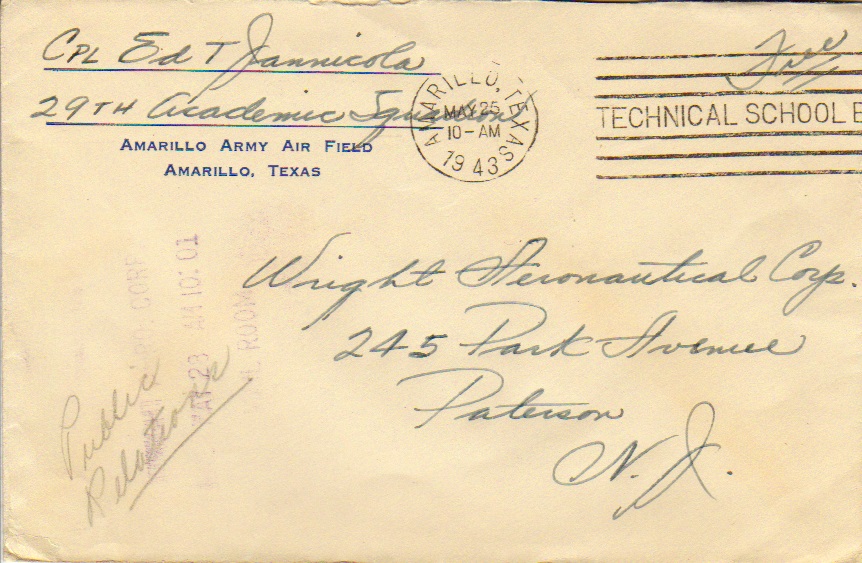 CPL Ed T Jannicola
29TH Academic Squadron
AMARILLO ARMY AIR FIELD
AMARILLO, TEXAS
AMARILLO, TEXAS
MAY 25
10-AM
1943
Free
TECHNICAL SCHOOL
Wright Aeronautical Corp.
245 Park Avenue
Paterson
N. J.
Public
Relations
CORP.
MAY 28 AM 10:01
ROOM